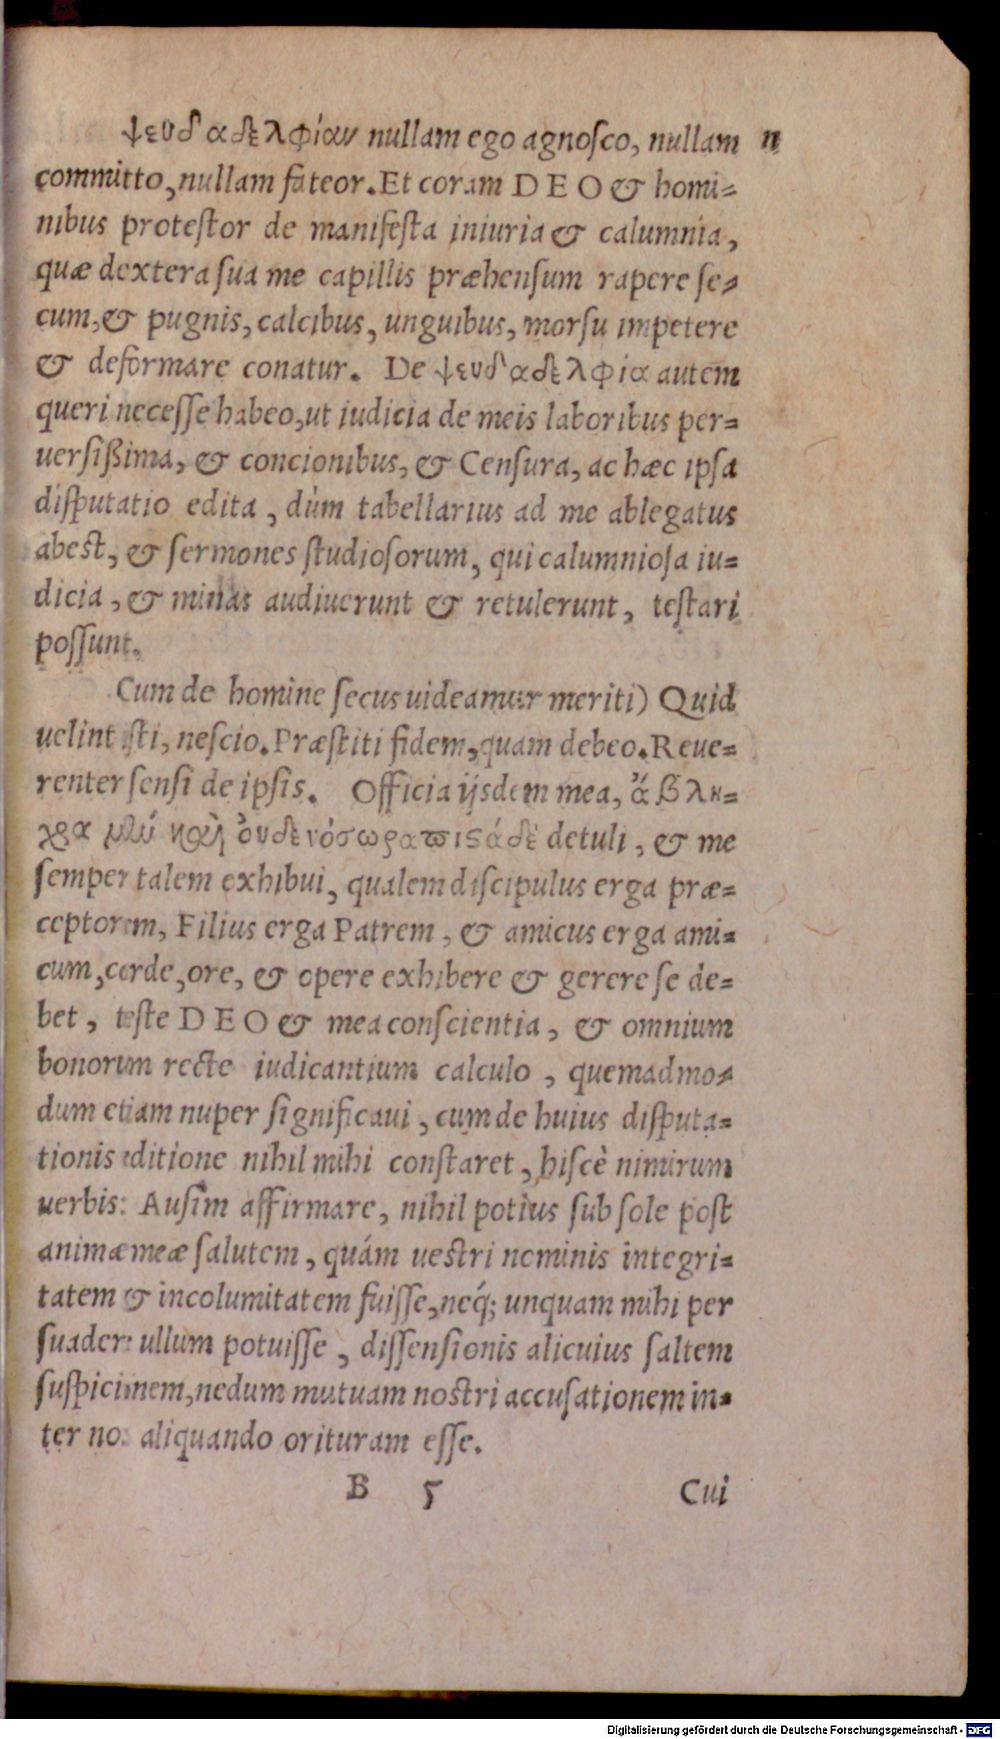 ψευδαδελφίαν nullam ego agnoſco, nullam n
committo, nullam fateor. Et coram DEO & homi=
nibus proteſtor de manifeſta iniuria & calumnia,
quæ dextera ſua me capillis præhenſum rapere ſe=
cum, & pugnis, calcibus, unguibus, morſu impetere
& deformare conatur. De ψευδαδελφία autem
queri neceſſe habeo, ut iudicia de meis laboribus per=
uerſißima, & concionibus, & Cenſura, ac hæc ipſa
diſputatio edita, dùm tabellarius ad me ablegatus
abeſt, & ſermones ſtudioſorum, qui calumnioſa iu=
dicia, & minas audiuerunt & retulerunt, teſtari
poſſunt.
Cum de homine ſecus uideamur meriti) Quid
uelint iſti, neſcio. Præſtiti fidem, quam debeo. Reue=
renter ſenſi de ipſis. Officia ijsdem mea, ἄβλη=
χρα μὲν καὶ detuli, & me
ſemper talem exhibui, qualem diſcipulus erga præ=
ceptorem, Filius erga Patrem, & amicus erga ami=
cum, corde, ore, & opere exhibere & gerere ſe de=
bet, teſte DEO & mea conſcientia, & omnium
bonorum recte iudicantium calculo, quemadmo=
dum etiam nuper ſignificaui, cum de huius diſputa=
tionis editione nihil mihi conſtaret, hiſcè nimirum
uerbis: Auſim affirmare, nihil potius ſub ſole poſt
animæ meæ ſalutem, quám ueſtri neminis integri=
tatem & incolumitatem fuiſſe, neq́; unquam mihi per
ſuadere ullum potuiſſe, diſſenſionis alicuius ſaltem
ſuſpicionem, nedum mutuam noſtri accuſationem in=
ter nos aliquando orituram eſſe.
B 5 Cui
Digitalisierung gefördert durch die Deutsche Forschungsgemeinschaft - DFG